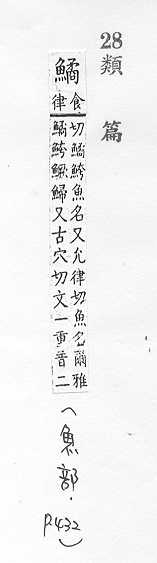 28
類篇
鱊
食律切鱊鮬魚名又允律切魚名爾雅
鱊鮬鱖鯞又古穴切文一重音二
(魚部.
P.432)